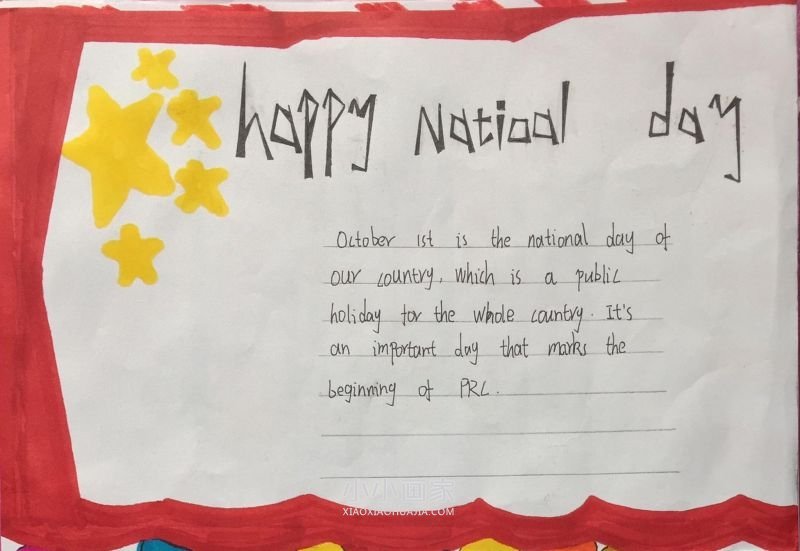 happy Natioal day
October 1st is the national day of
our country, which is a public
holiday for the whole country. It's
an important day that marks the
beginning of PRC.
小小画家
XIAOXIAOHUAJIA.COM